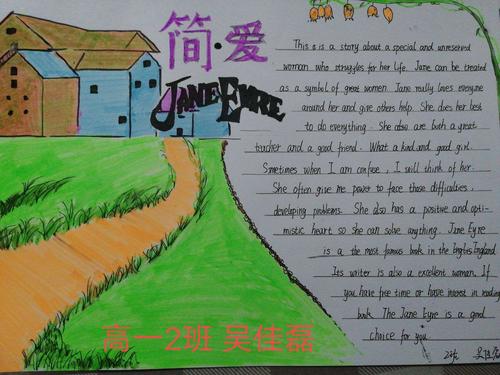 简·爱
JANE EYRE
This is a story about a special and unreserved
woman who struggles for her life. Jane can be treated
as a symbol of great women. Jane really loves everyone
around her and give others help. She does her best
to do everything. She also are both a great
teacher and a good friend. What a kind and good girl.
Sometimes when I am confuse, I will think of her.
She often give me power to face those difficulties,
developing problems. She also has a positive and opti-
mistic heart so she can solve anything. Jane Eyre
is a the most famous book in the England
Its writer is also a excellent woman. If
you have free time or have interest in reading
book. The Jane Eyre is a good
choice for you
高一2班 吴佳磊